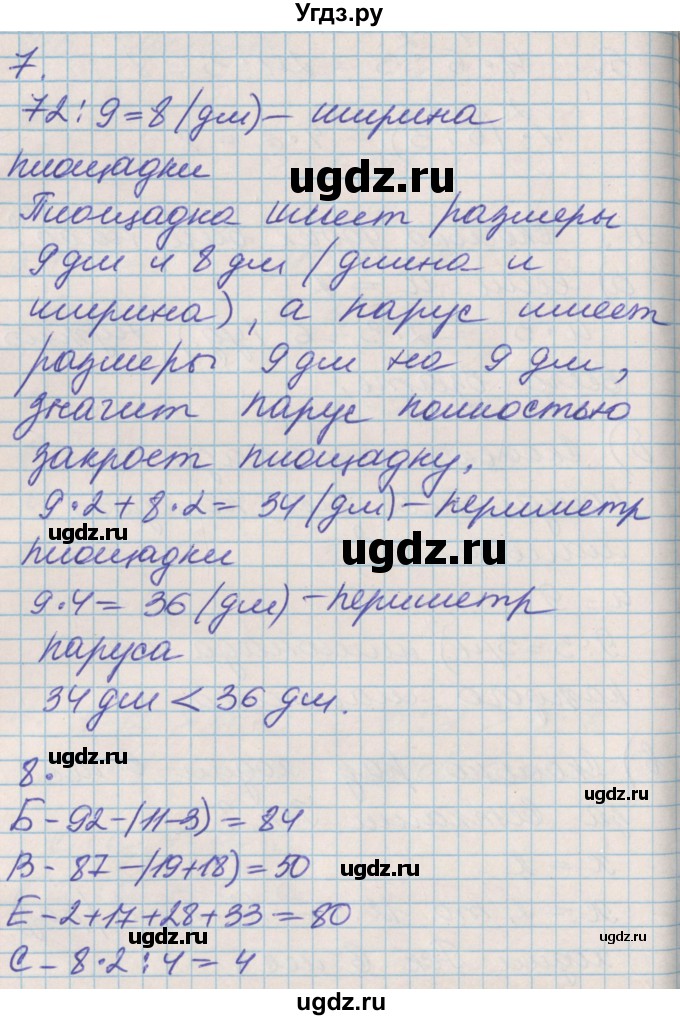 Угдз.ру
7.
72 : 9 = 8 (дм) – ширина
площадки
ugdz.ru
Площадка имеет размеры
9 дм и 8 дм (длина и
ширина), а парус имеет
размеры 9 дм на 9 дм,
значит парус полностью
закроет площадку.
9·2 + 8·2 = 34 (дм) – периметр
ugdz.ru
ugdz.ru
площадки
9·4 = 36 (дм) – периметр
паруса
34 дм < 36 дм.
ugdz.ru
8.
ugdz.ru
Б – 92 – (11 – 3) = 84
ugdz.ru
В – 87 – (19+18) = 50
ugdz.ru
Е – 2+17+28+33 = 80
ugdz.ru
С – 8·2 : 4 = 4
ugdz.ru
ugdz.ru